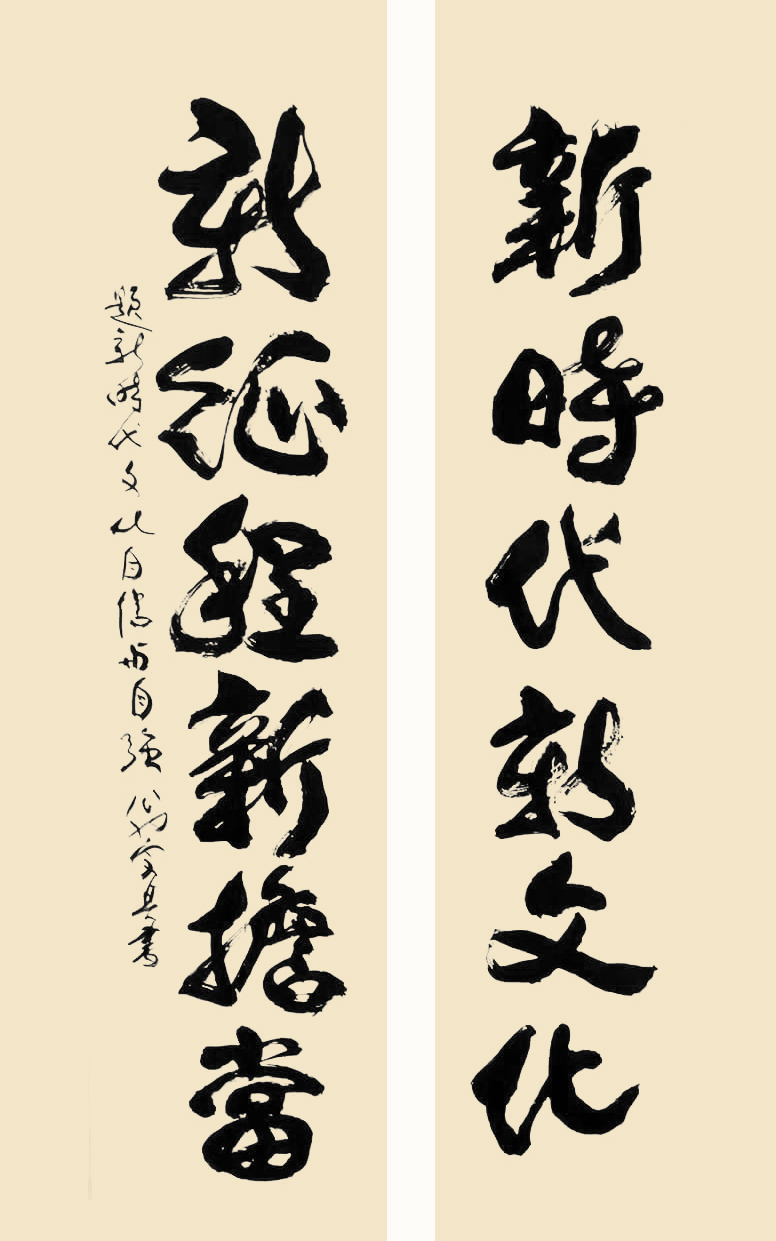 新時代新文化
新征程新擔當
題新時代文化自信與自強
書